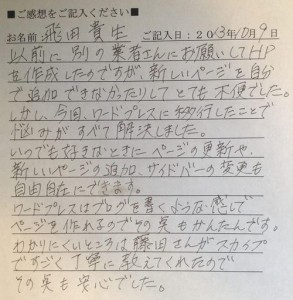 ■ご感想をご記入ください■
お名前 飛田 貴生 ご記入日：2013年10月9日
以前に別の業者さんにお願いしてHP
を作成したのですが、新しいページを自分
で追加できなかったりしてとても不便でした。
しかし、今回、ワードプレスに移行したことで
悩みがすべて解決しました。
いつでも好きなときにページの更新や
新しいページの追加、サイドバーの変更も
自由自在にできます。
ワードプレスはブログを書くような感じで
ページを作れるのでその点もかんたんです。
わかりにくいところは藤田さんがスカイプ
ですごく丁寧に教えてくれたので
その点も安心でした。